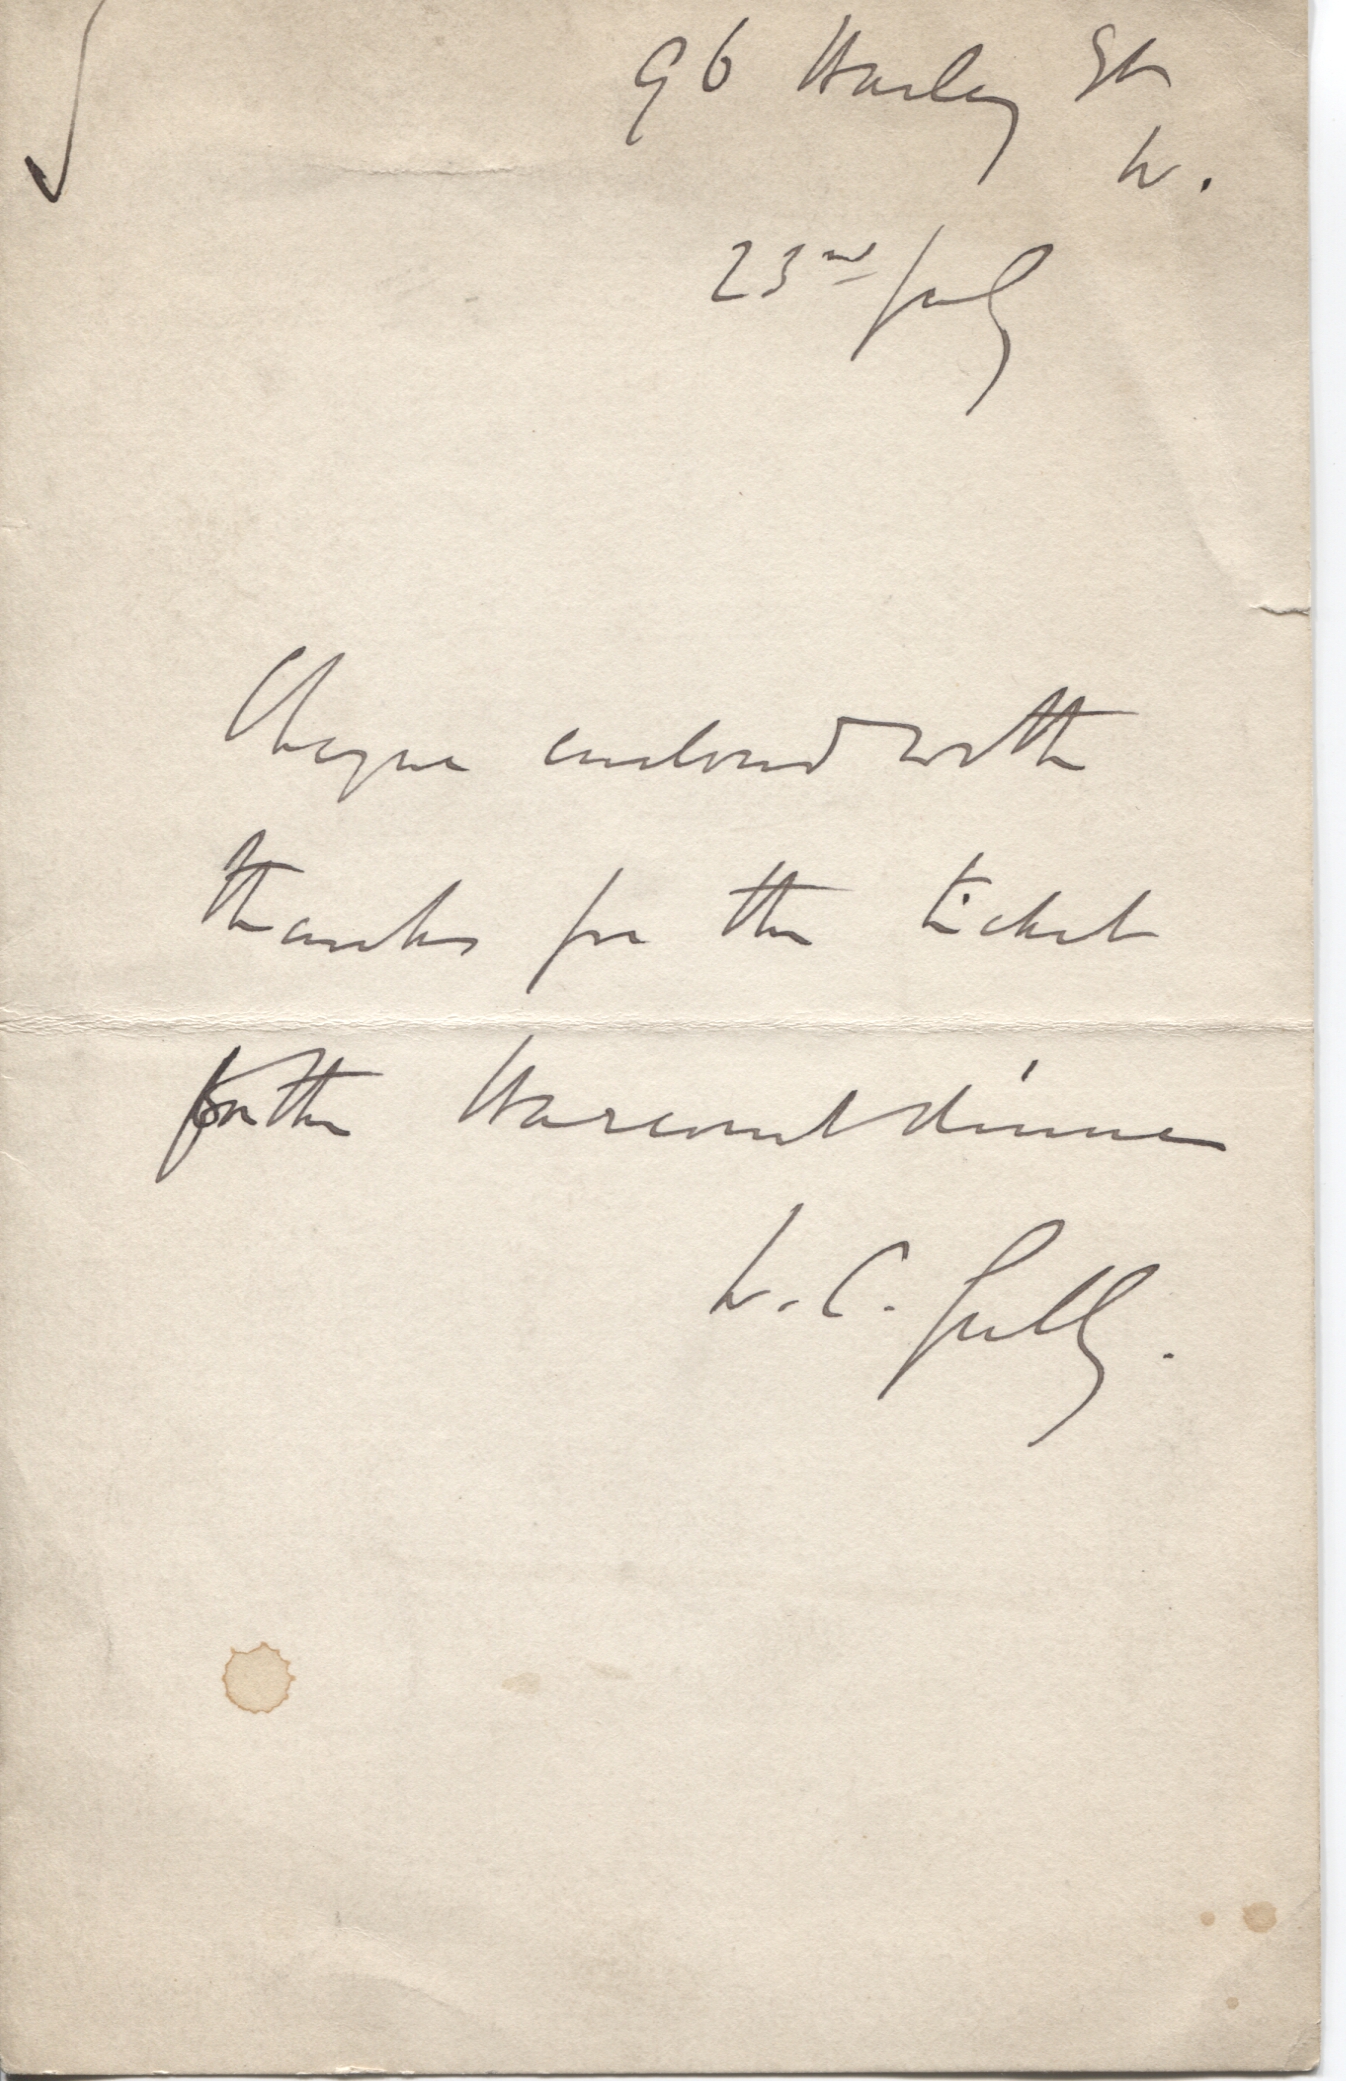 96 Harley St
W.
23rd July
Cheque enclosed with
thanks for the ticket
for the Harcourt dinner
W. C. Gully.